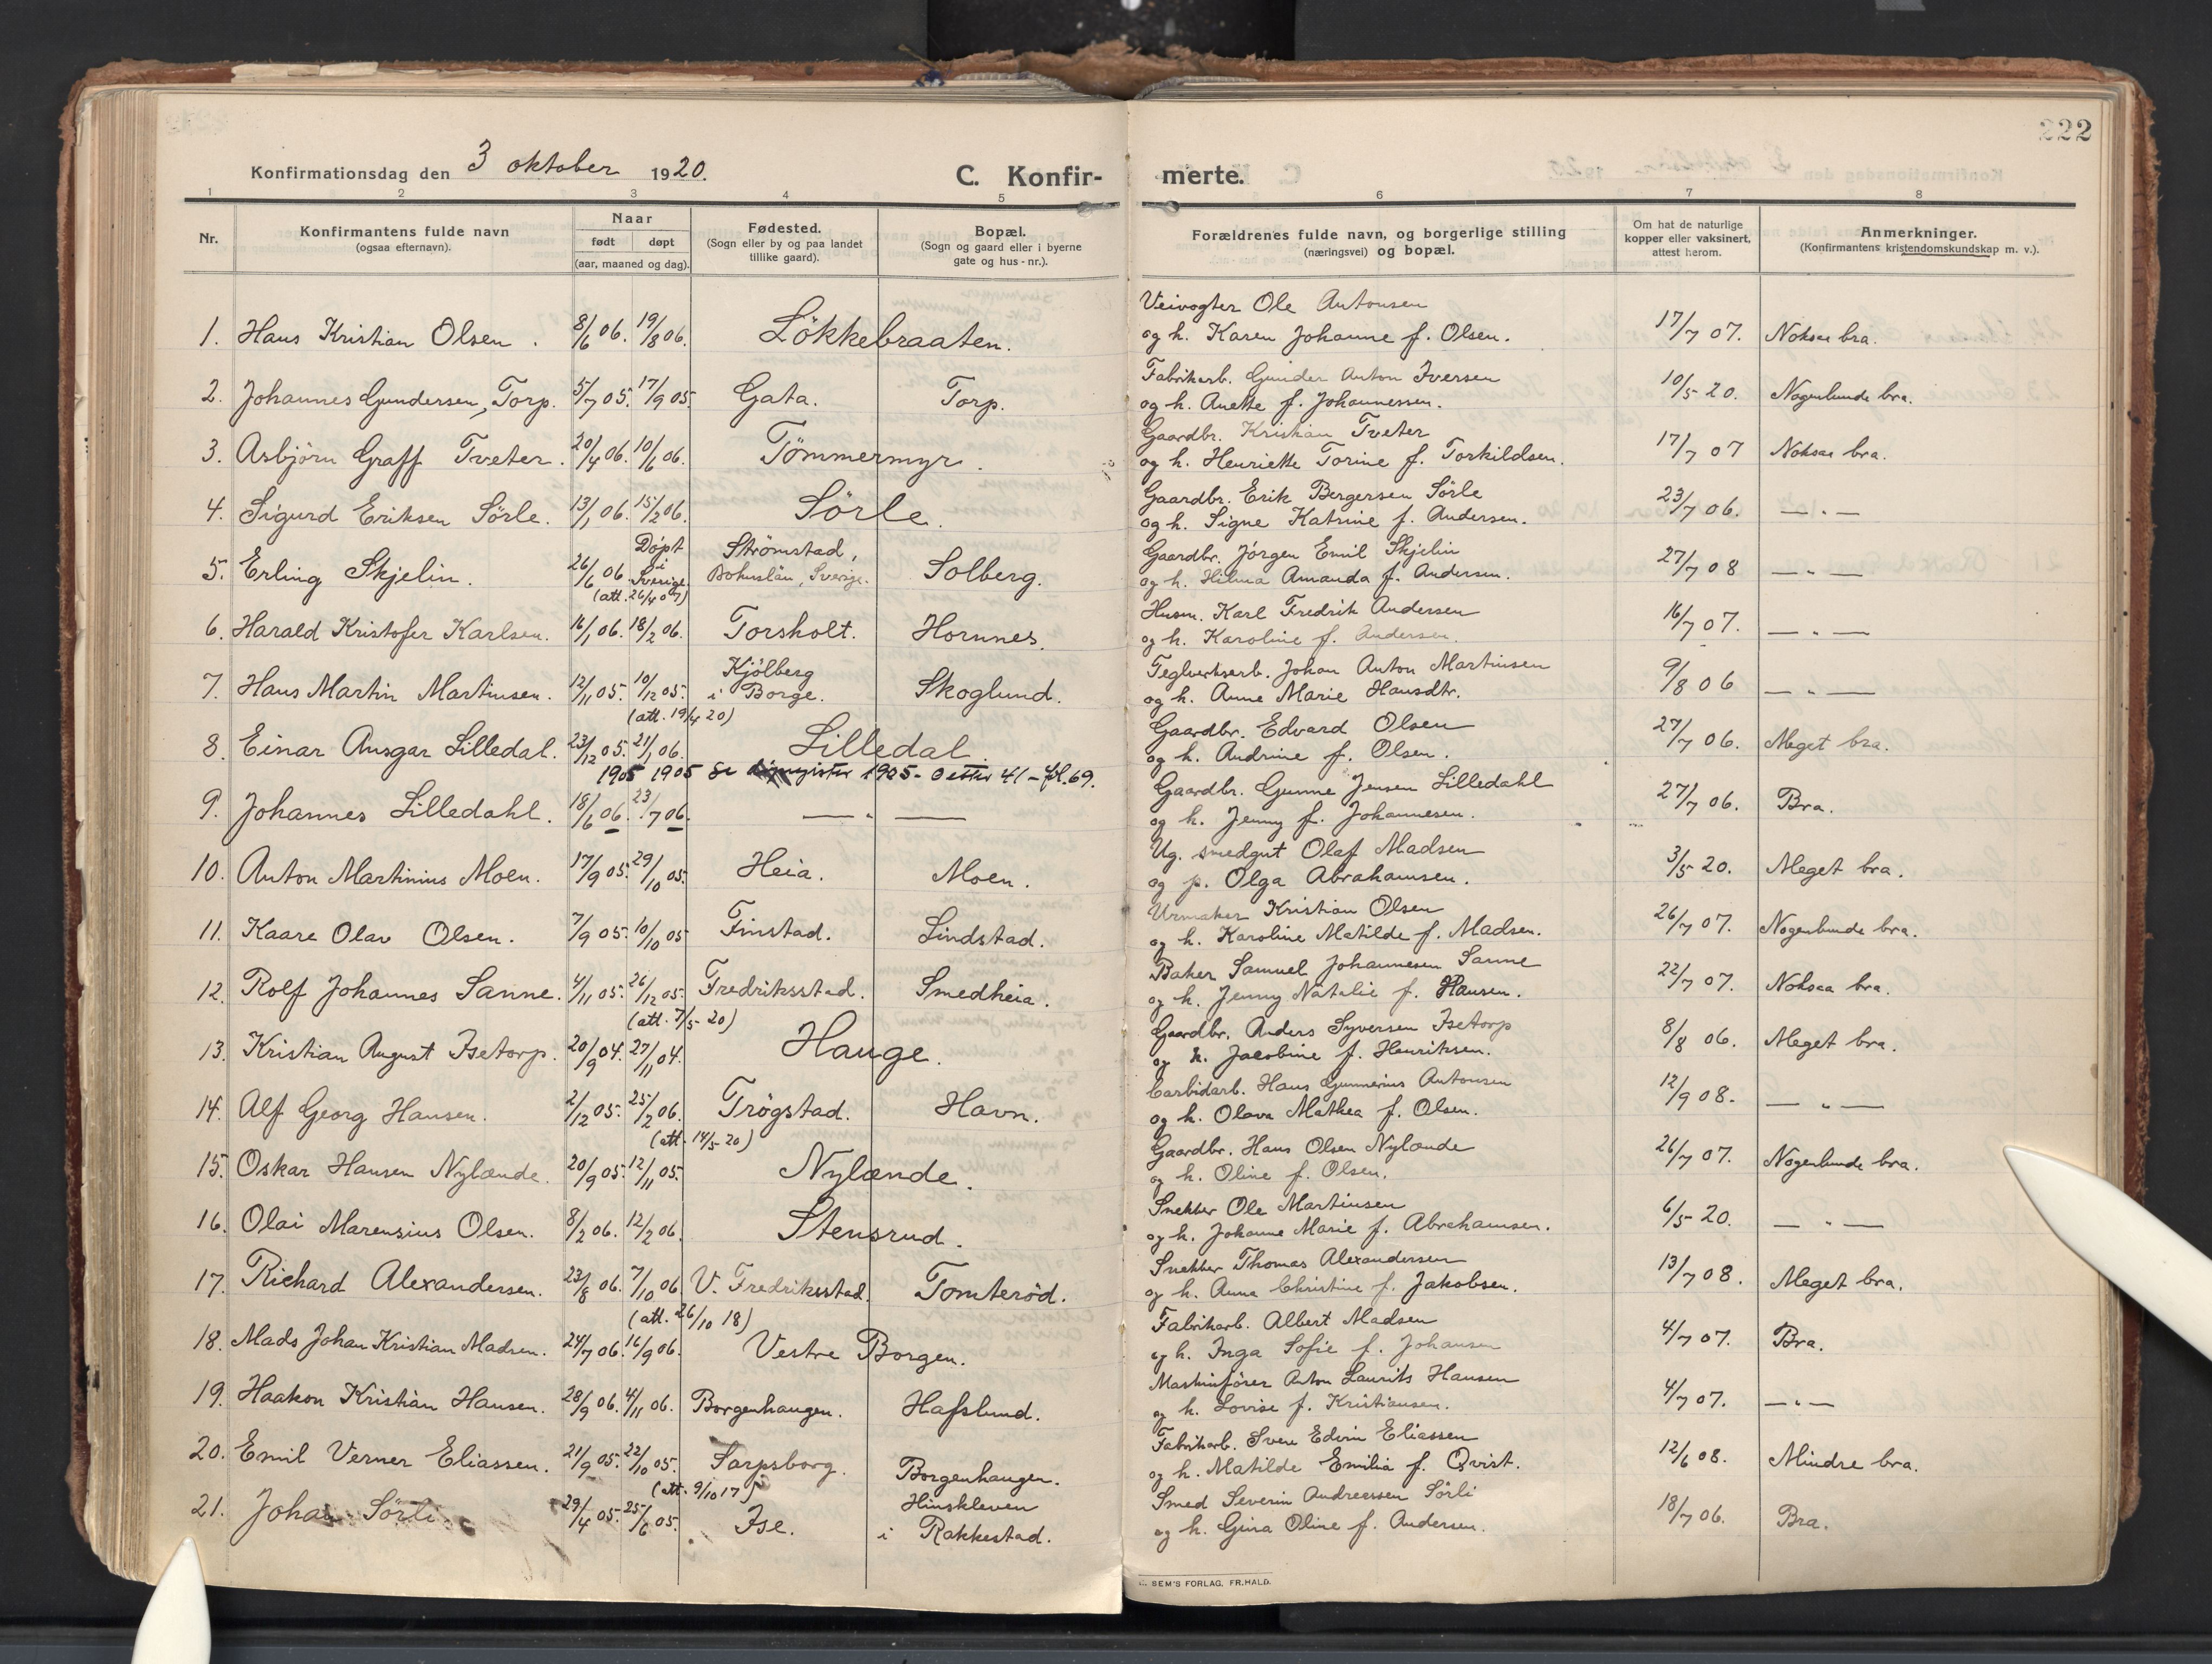 222
Konfirmationsdag den 3 oktober 1920.
C. Konfir- merte.
1 2 3 4 5 6 7 8
Nr.
Konfirmantens fulde navn
(ogsaa efternavn).
Naar
født døpt
(aar, maaned og dag).
Fødested.
(Sogn eller by og paa landet
tillike gaard).
Bopæl.
(Sogn og gaard eller i byerne
gate og hus-nr.).
Forældrenes fulde navn, og borgerlige stilling
(næringsvei) og bopæl.
Om hat de naturlige
kopper eller vaksinert,
attest herom.
Anmerkninger.
(Konfirmantens kristendomskundskap m. v.).
Veivogter Ole Antonsen
1. Hans Kristian Olsen. 8/6 06. 19/8 06. Løkkebraaten. og h. Karen Johanne f. Olsen. 17/7 07. Noksaa bra.
Fabrikarb. Gunder Anton Iversen
2. Johannes Gundersen, Torp. 5/7 05. 17/9 05. Gata. Torp. og h. Anette f. Johannessen. 10/5 20. Nogenlunde bra.
Gaardbr. Kristian Tveter
3. Asbjörn Graff Tveter. 20/4 06. 10/6 06. Tömmermyr. og h. Henriette Torine f. Torkildsen. 17/7 07 Noksaa bra.
Gaardbr. Erik Bergersen Sörle
4. Sigurd Eriksen Sörle. 13/1 06. 15/2 06. Sörle. og h. Signe Katrine f. Andersen. 23/7 06. — " —
Döpt i Sverige (att. 26/4 07) Strömstad, Gaardbr. Jörgen Emil Skjelin
5. Erling Skjelin. 26/6 06 Bohuslän, Sverige. Solberg. og h. Hilma Amanda f. Andersen. 27/7 08 — " —
Husm. Karl Fredrik Andersen
6. Harald Kristofer Karlsen. 16/1 06. 18/2 06. Torsholt. Hornnes. og h. Karoline f. Andersen. 16/7 07. — " —
Kjölberg Teglverkserb. Johan Anton Martinsen
7. Hans Martin Martinsen. 12/11 05. 10/12 05. i Borge. Skoglund. og h. Anne Marie Hansdtr. 9/8 06 — " —
(att. 19/4 20)
Gaardbr. Edvard Olsen
8. Einar Ansgar Lilledal. 23/12 05. 21/1 06. Lilledal. og h. Andrine f. Olsen. 27/7 06. Meget bra.
1905 1905 Se 1905 - 0 etter 41 - fol. 69.
Gaardbr. Gunne Jensen Lilledahl
9. Johannes Lilledahl. 18/6 06. 23/7 06. — " — og h. Jenny f. Johannesen. 27/7 06. Bra.
Ug. smedgut Olaf Madsen
10. Anton Martinius Moen. 17/9 05. 29/10 05. Heia. Moen. og p. Olga Abrahamsen. 3/5 20. Meget bra.
Urmaker Kristian Olsen
11. Kaare Olav Olsen. 7/9 05. 10/10 05 Finstad. Lindstad. og h. Karoline Matilde f. Madsen. 26/7 07. Nogenlunde bra.
Baker Samuel Johannesen Sanne
12. Rolf Johannes Sanne. 4/11 05. 26/12 05. Fredriksstad. Smedheia. og h. Jenny Natalie f. Hansen. 22/7 07. Noksaa bra.
(att. 7/5 20)
Gaardbr. Anders Syversen Isetorp
13. Kristian August Isetorp. 20/9 04. 27/11 04. Hauge. og h. Jacobine f. Henriksen. 8/8 06. Meget bra.
Carbidarb. Hans Gunnerius Antonsen
14. Alf Georg Hansen. 2/12 05. 25/2 06. Trögstad. Havn. og h. Olava Mathea f. Olsen. 12/9 08. — " —
(att. 14/5 20)
Gaardbr. Hans Olsen Nylænde
15. Oskar Hansen Nylænde. 20/9 05. 12/11 05. Nylænde. og h. Oline f. Olsen. 26/7 07. Nogenlunde bra.
Snekker Ole Martinsen
16. Olai Marensius Olsen. 8/2 06. 12/2 06. Stensrud. og h. Johanne Marie f. Abrahamsen. 6/5 20. — " —
Snekker Thomas Alexandersen
17. Richard Alexandersen. 23/8 06. 7/10 06. V. Fredriksstad. Tomteröd. og h. Anna Christine f. Jakobsen. 13/7 08. Meget bra.
(att. 26/10 18)
Fabrikarb. Albert Madsen
18. Mads Johan Kristian Madsen. 24/7 06. 16/9 06. Vestre Borgen. og h. Inga Sofie f. Johansen 4/7 07. Bra.
Maskinförer Anton Laurits Hansen
19. Haakon Kristian Hansen. 28/9 06. 4/11 06. Borgenhaugen. Hafslund. og h. Lovise f. Kristiansen. 4/7 07. — " —
Fabrikarb. Sven Edvin Eliassen
20. Emil Verner Eliassen. 21/9 05. 22/10 05. Sarpsborg. Borgenhaugen. og h. Matilde Emilia f. Qvist. 12/6 08. Mindre bra.
(att. 9/10 17)
Hinskleven Smed Severin Andreassen Sörli
21. Johan Sörli. 29/4 05. 25/6 05. Ise. i Rakkestad. og h. Gina Oline f. Andersen. 18/7 06. Bra.
E. SEM'S FORLAG, FR.HALD.